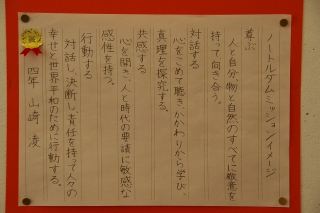 ノートルダムミッションイメージ
尊ぶ
人と自分、物と自然のすべてに敬意を
持って向き合う。
対話する
心をこめて聴き、かかわりから学び、
真理を探究する。
共感する
心を開き、人と時代の要請に敏感な
感性を持つ。
行動する
対話し、決断し、責任を持って人々の
幸せと世界平和のために行動する。
四年 山崎 凌